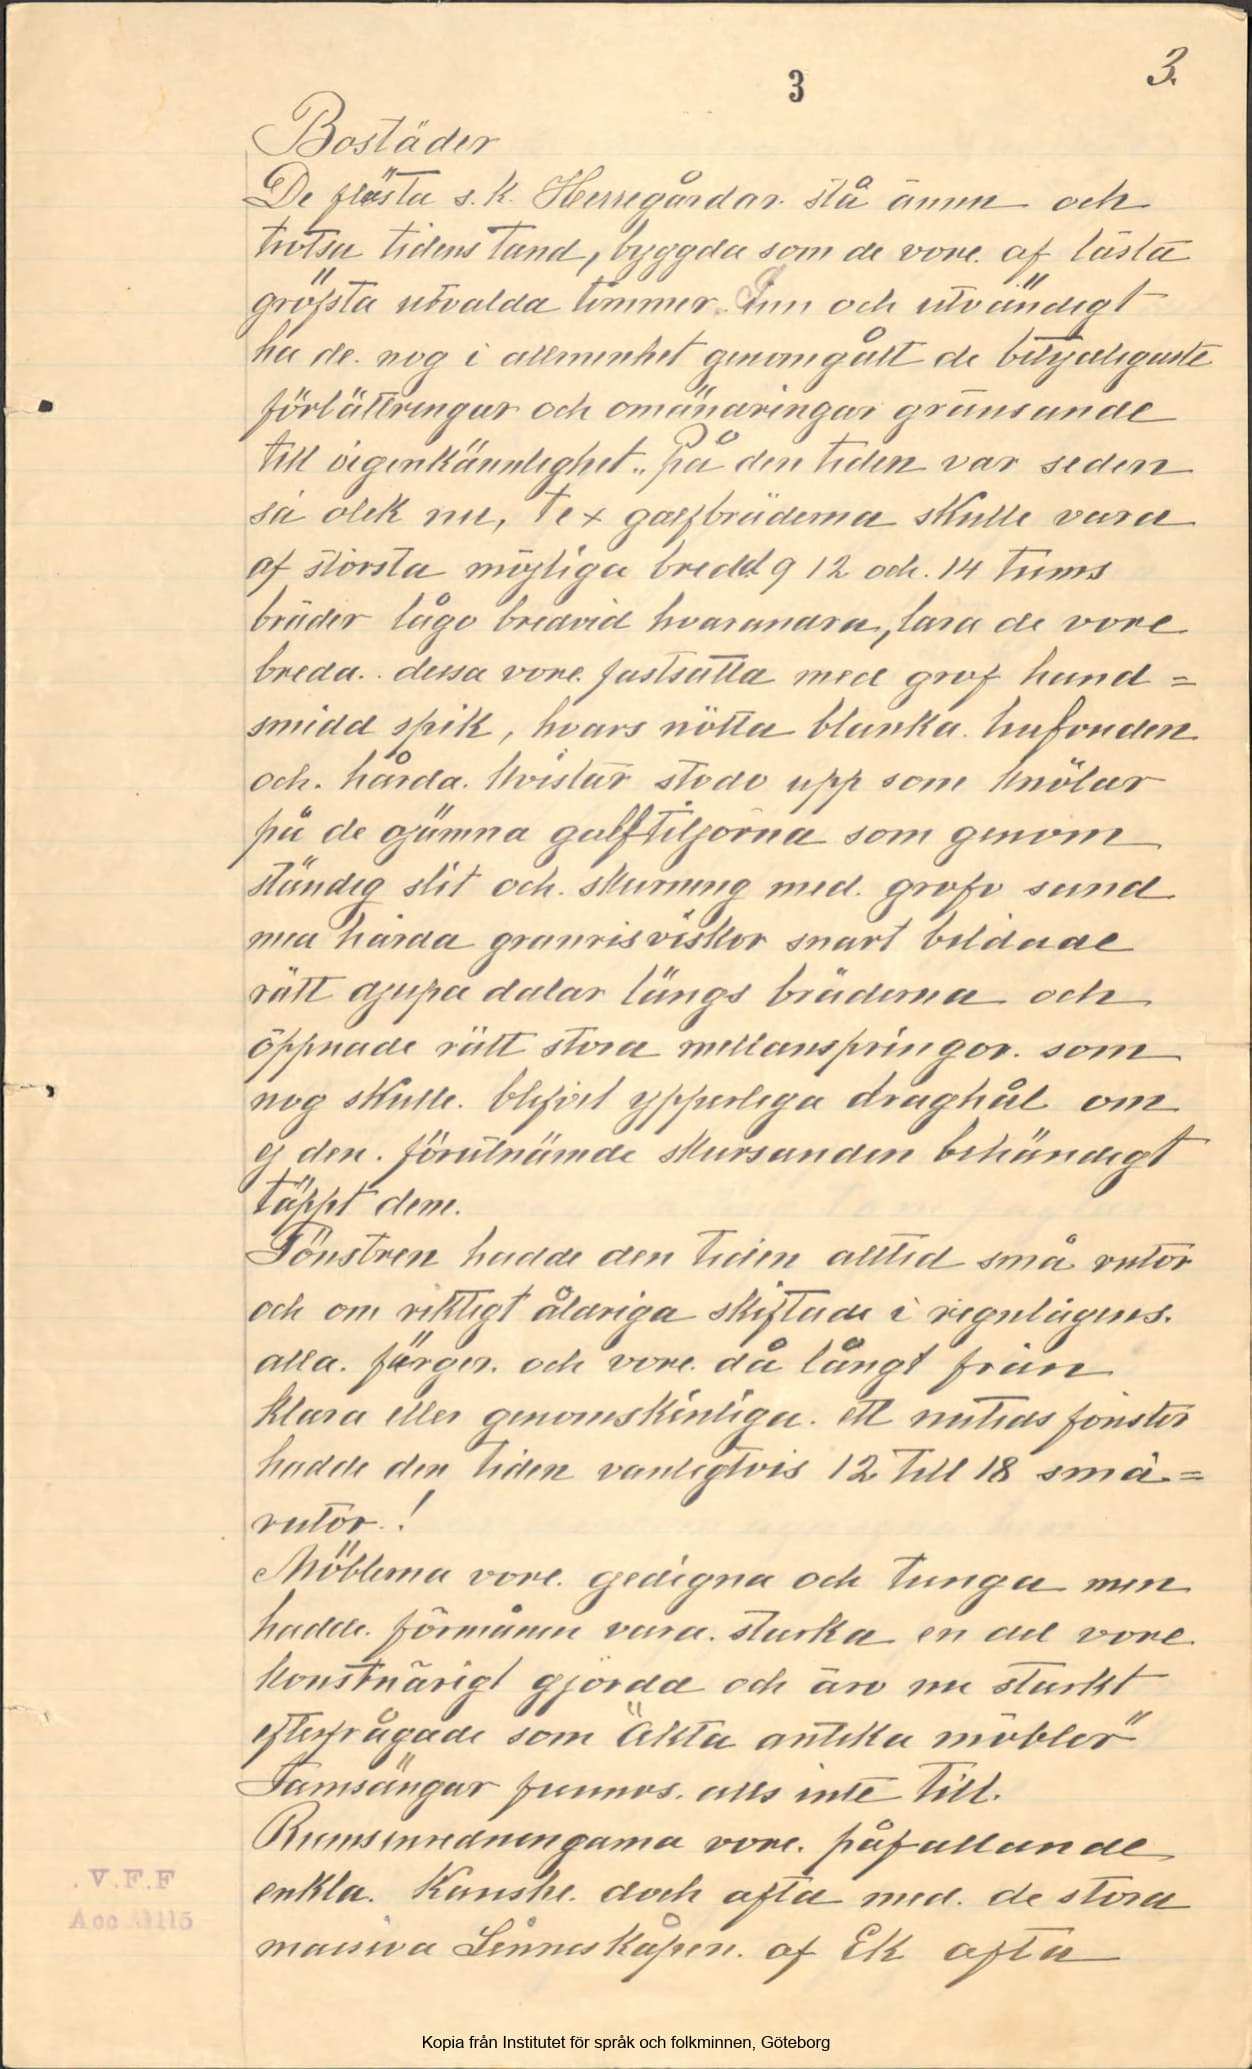 3
3.
Bostäder
De flästa s.k. Herregårdar stå ännu och
trotsa tidens tand, byggda som de vore. af bästa
gröfsta utvalda timmer. Inn och utvändigt
ha de. nog i allmenhet genomgått de betydligaste
förbättringar och omändringar gränsande
till oigenkännlighet.. På den tiden var seden
så olik nu, tex golfbräderna skulle vara
af största möjliga bredd 9 12 och. 14 tums
bräder lågo bredvid hvarandra, bara de vore
breda.. dessa vore. fastsatta med grof hand=
smidd spik, hvars nötta blanka. hufvuden
och. hårda. kvistar stodo upp som knölar
på de ojämna golftiljorna som genom
ständig slit och. skurning med. grofv sand
med hårda granrisviskor snart bildade
rätt djupa dalar längs bräderna och
öppnade rätt stora mellanspringor. som
nog skulle. blifvit ypperliga draghål om
ej den. förutnämde skursanden behändigt
täppt dem.
Fönstren hadde den tiden alltid små rutor
och om riktigt åldriga skiftade i regnbågens.
alla. färger. och vore. då långt från
klara eller genomskinliga. ett nutids fönster
hadde den tiden vanligtvis 12 till 18 små=
rutor.!
Möblerna vore. gedigna och tunga men
hadde. förmånen vara. starka en del vore
konstnärigt gjorda och äro nu starkt
efterfrågade som "äkta antika möbler"
Jamsängar funnos. alls inte till.
Rumsinredningarna vore. påfallande
enkla. Kanske. dock ofta med. de stora
massiva Linneskåpen. af Ek ofta
. V.F.F
Acc 3115
Kopia från Institutet för språk och folkminnen, Göteborg